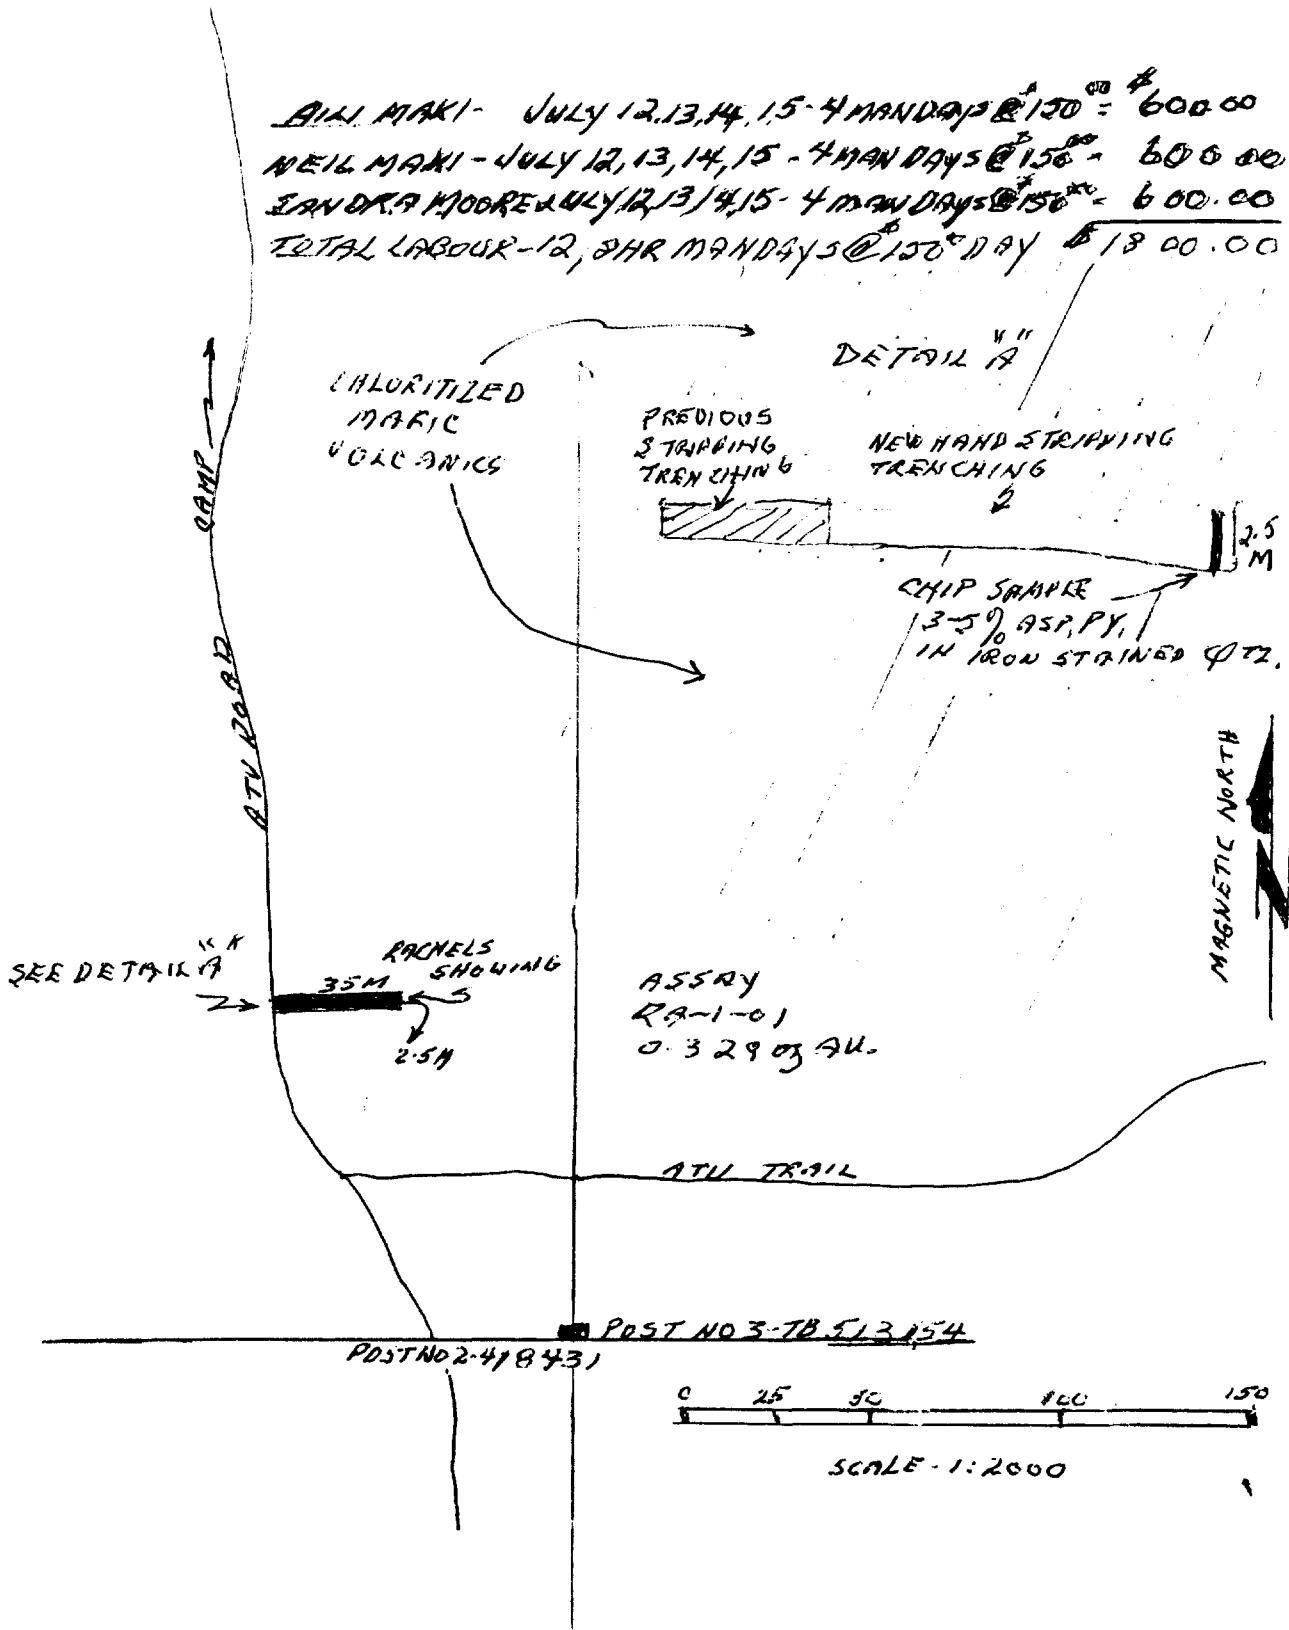 AILI MAKI - JULY 12,13,14,15 - 4 MANDAYS @ $150.00 = $600.00
NEIL MAKI - JULY 12,13,14,15 - 4 MAN DAYS @ $150.00 - 600.00
SANDRA MOORE JULY 12,13,14,15 - 4 MAN DAYS @ $150.00 - 600.00
TOTAL LABOUR - 12, 8HR MANDAYS @ $150.00 DAY $1800.00
DETAIL "A"
CHLORITIZED
MAFIC
VOLCANICS
CAMP
PREVIOUS
STRIPPING
TRENCHING
NEW HAND STRIPPING
TRENCHING
2.5
M
CHIP SAMPLE
3-5% ASP, PY,
IN IRON STAINED QTZ.
ATV ROAD
MAGNETIC NORTH
N
SEE DETAIL "A"
RACHELS
SHOWING
35M
2.5M
ASSAY
RA-1-01
0.329 oz AU.
ATV TRAIL
POST NO 3-TB 513154
POST NO 2-418431
0 25 50 100 150
SCALE - 1:2000